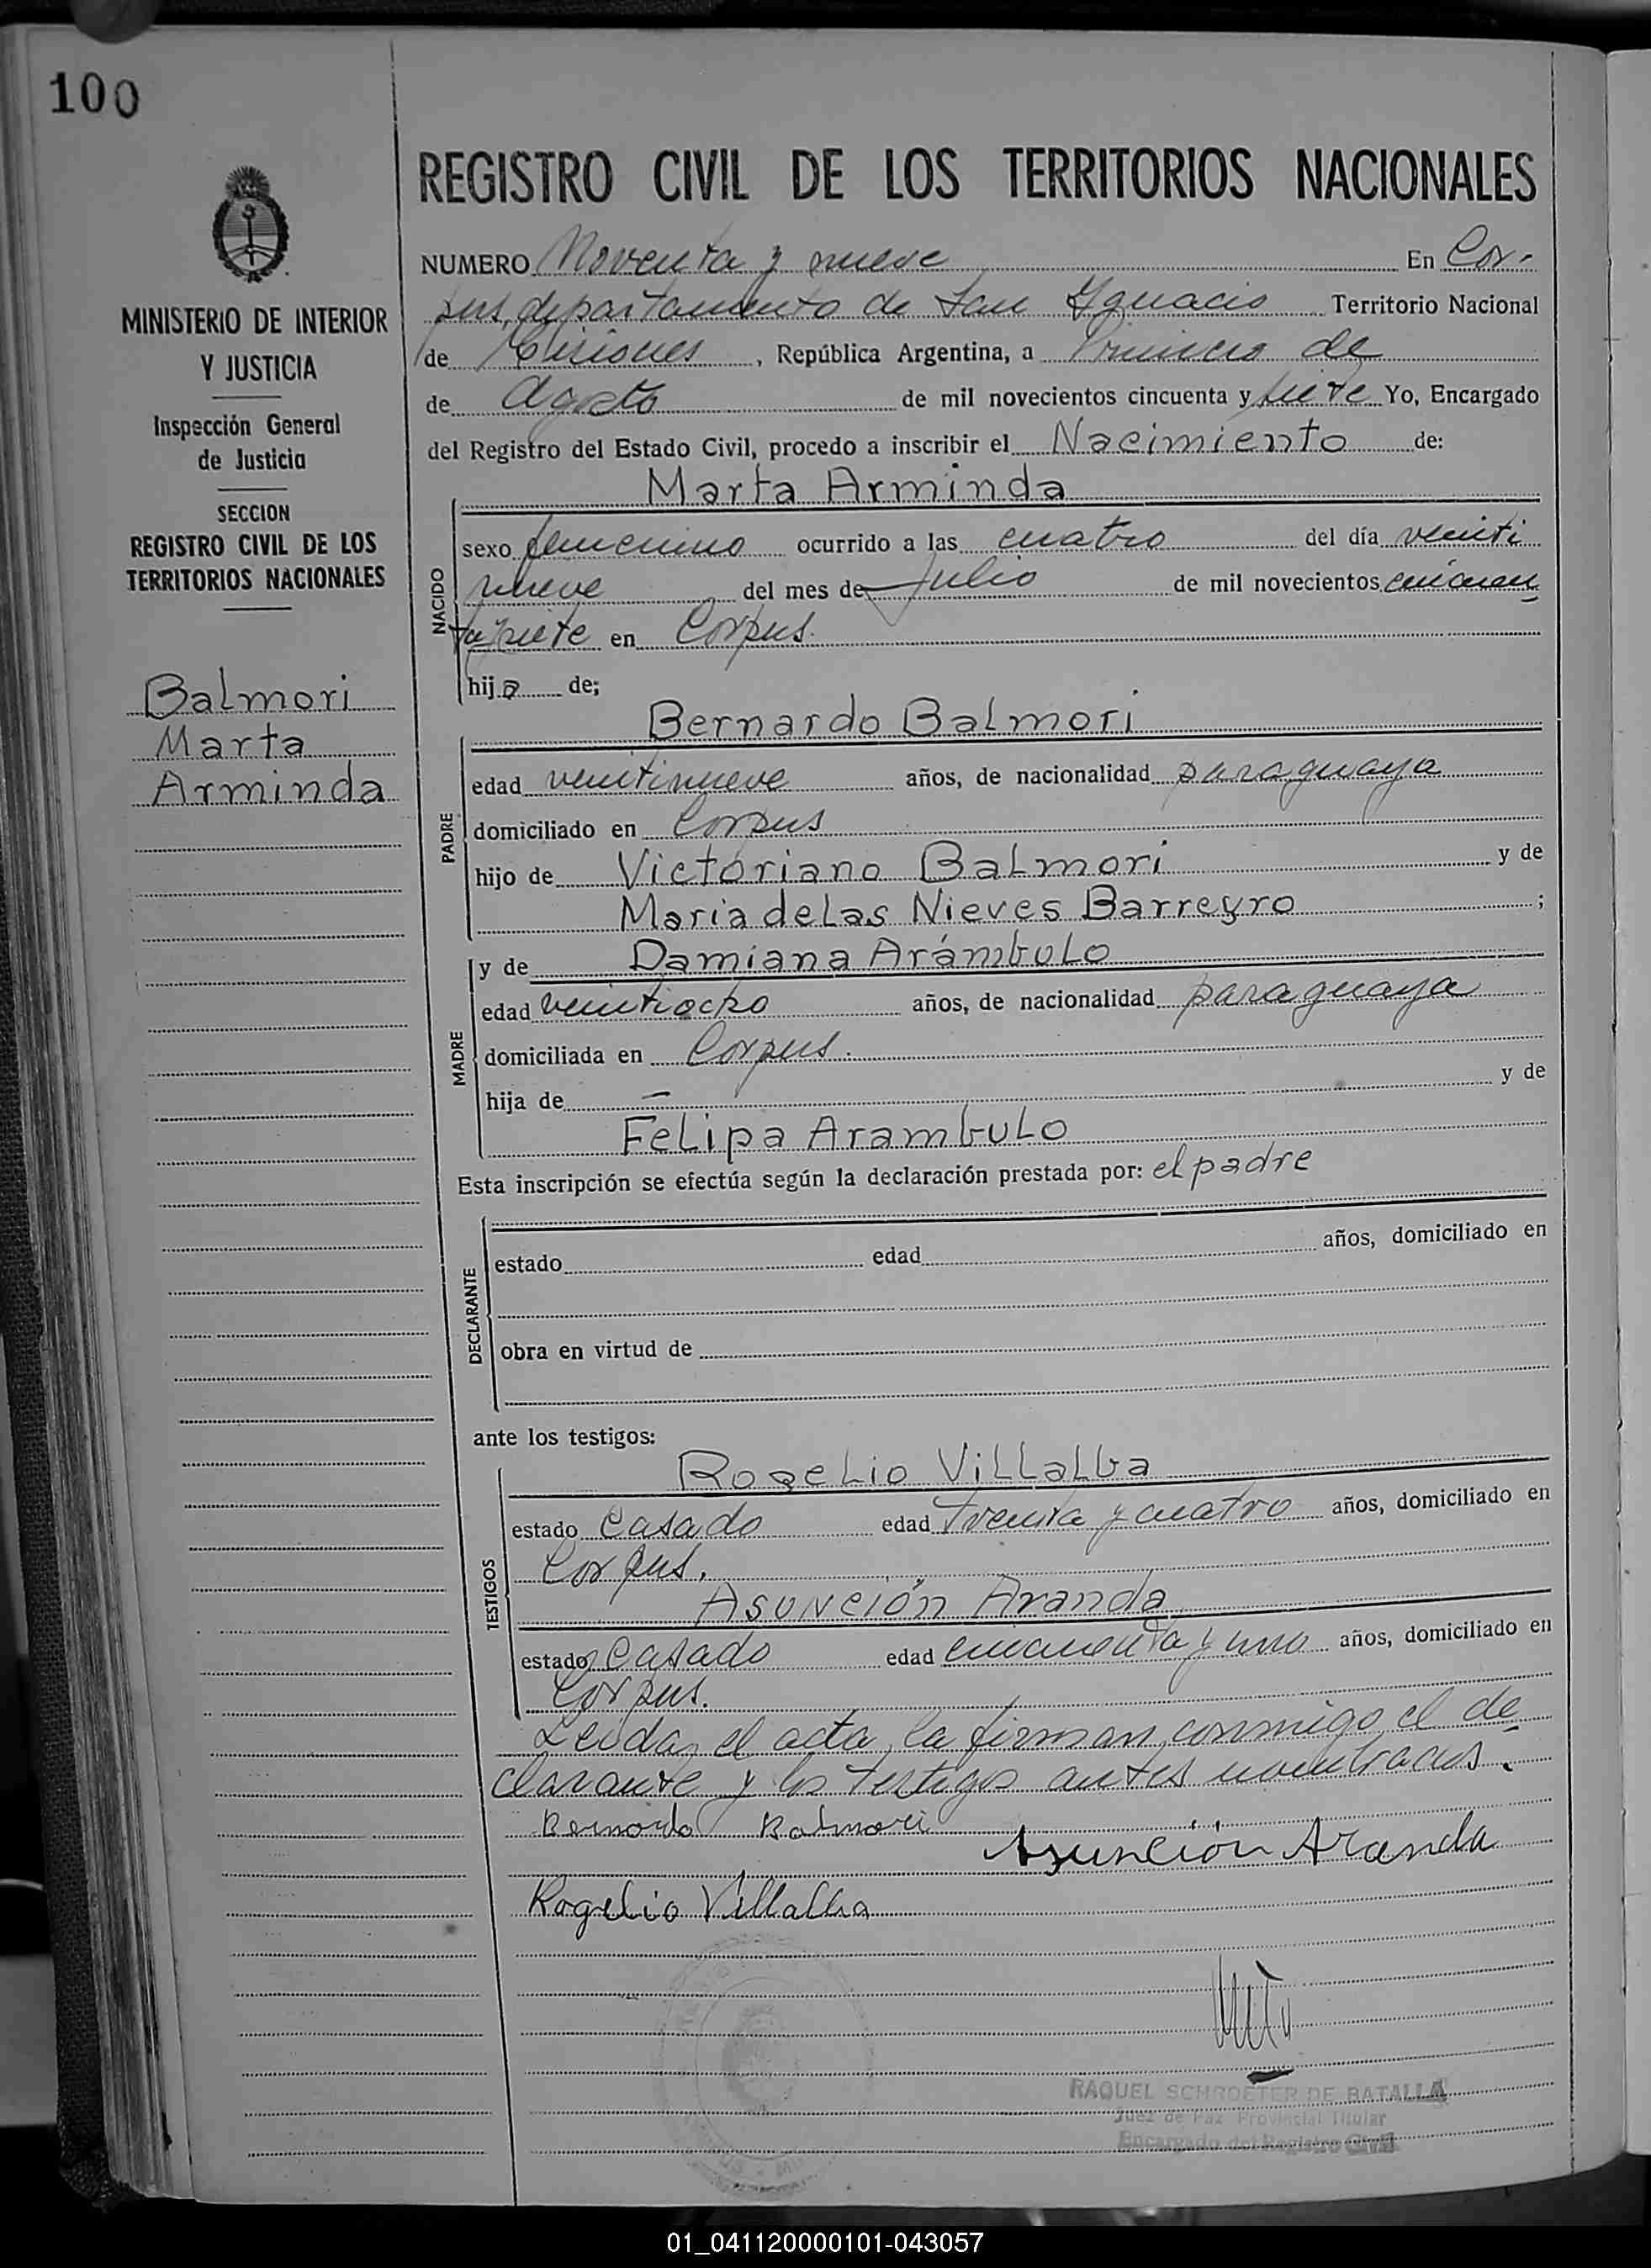 100
REGISTRO CIVIL DE LOS TERRITORIOS NACIONALES
MINISTERIO DE INTERIOR
Y JUSTICIA
Inspección General
de Justicia
SECCION
REGISTRO CIVIL DE LOS
TERRITORIOS NACIONALES
Balmori
Marta
Arminda
NUMERO Noventa y nueve En Cor-
pus, departamento de San Ygnacio Territorio Nacional
de Misiones, República Argentina, a Primero de
de Agosto de mil novecientos cincuenta y siete Yo, Encargado
del Registro del Estado Civil, procedo a inscribir el Nacimiento de:
Marta Arminda
NACIDO
sexo femenino ocurrido a las cuatro del día veinti
nueve del mes de Julio de mil novecientos cincuen
ta y siete en Corpus.
hija de;
Bernardo Balmori
PADRE
edad veintinueve años, de nacionalidad paraguaya
domiciliado en Corpus
hijo de Victoriano Balmori y de
Maria de Las Nieves Barreyro ;
y de Damiana Arámbulo
MADRE
edad veintiocho años, de nacionalidad paraguaya
domiciliada en Corpus.
hija de — y de
Felipa Arambulo
Esta inscripción se efectúa según la declaración prestada por: el padre
DECLARANTE
estado edad años, domiciliado en
obra en virtud de
ante los testigos:
Rogelio Villalba
TESTIGOS
estado Casado edad Treinta y cuatro años, domiciliado en
Corpus.
Asunción Aranda
estado Casado edad cincuenta y uno años, domiciliado en
Corpus.
Leida el acta, la firman conmigo el de
clarante y los testigos antes nombrados.
Bernardo Balmori
Asunción Aranda
Rogelio Villalba
RAQUEL SCHROETER DE BATALLA
Juez de Paz Provincial Titular
Encargado del Registro Civil
01_041120000101-043057